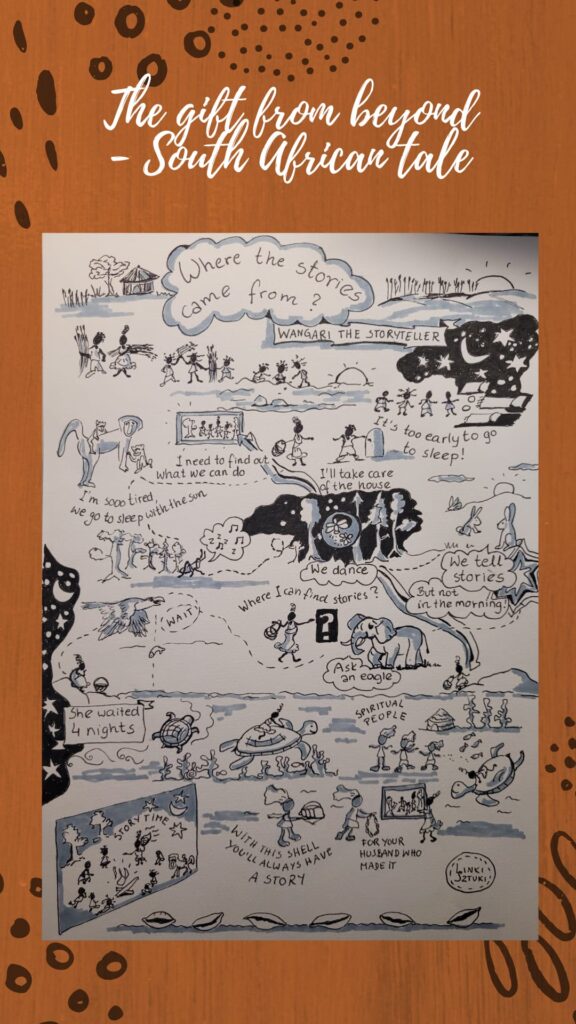 The gift from beyond
- South African tale
Where the stories
came from?
WANGARI THE STORYTELLER
It's too early to go
to sleep!
I need to find out
what we can do
I'll take care
of the house
I'm sooo tired
we go to sleep with the sun
Z Z Z Z
We dance
We tell
stories
But not
in the morning!
Where I can find stories?
WAIT!
?
Ask
an eagle
She waited
4 nights
SPIRITUAL
PEOPLE
STORY TIME
WITH THIS SHELL
YOU'LL ALWAYS HAVE
A STORY
FOR YOUR
HUSBAND WHO
MADE IT
LINKI
SZTUKI